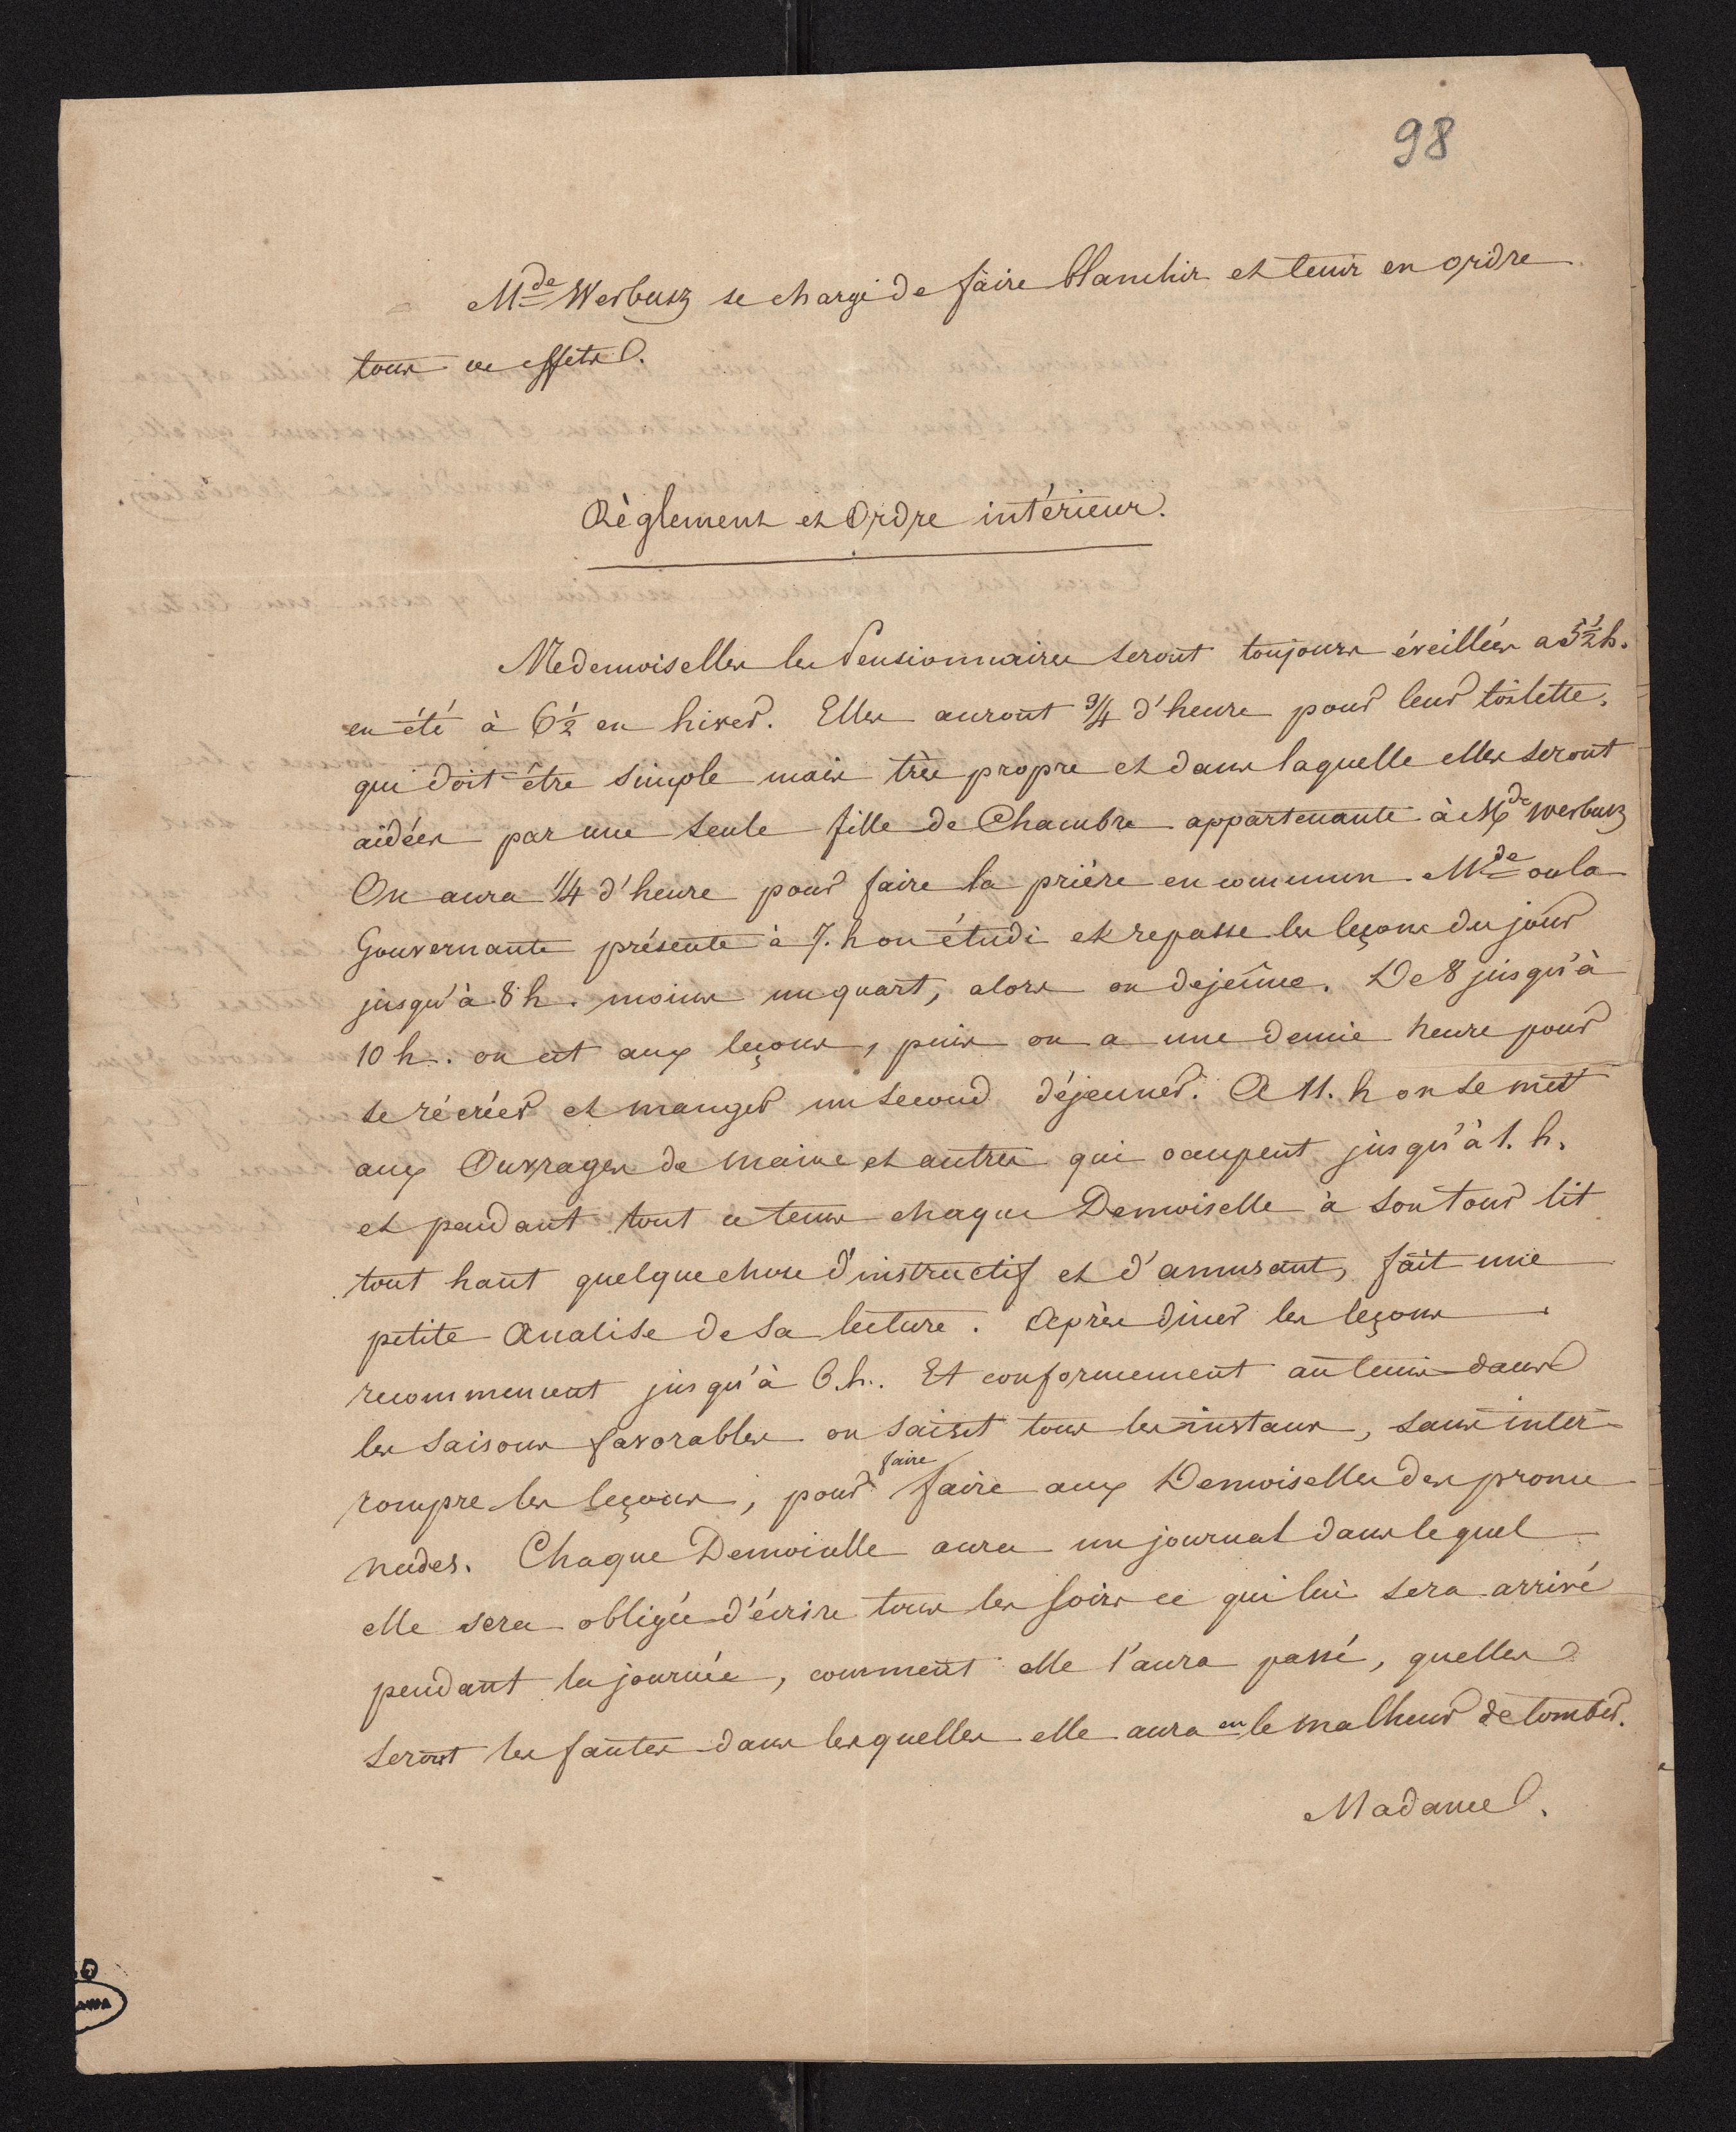 98
Mde Werbusz se charge de faire blanchir et tenir en ordre
tous ces effets.
Règlement et Ordre intérieur.
Medemoiselles les Pensionnaires seront toujours éveillées a 5½ h.
en été à 6½ en hiver. Elles auront ¾ d'heure pour leur toilette,
qui doit être simple mais très propre et dans laquelle elles seront
aidées par une seule fille de Chambre appartenante à Mde Werbusz
On aura ¼ d'heure pour faire la prière en commun Mde ou la
Gouvernante présente à 7. h on étudi et repasse les leçons du jour
jusqu'à 8 h. moins un quart, alors on dejeûne. De 8 jusqu'à
10 h. on est aux leçons, puis on a une demie heure pour
se récréer et manger un second déjeuner. A 11. h on se met
aux Ouvrages de mains et autres qui occupent jusqu'à 1. h.
et pendant tout ce tems chaque Demoiselle à son tour lit
tout haut quelque chose d'instructif et d'amusant, fait une
petite Analise de sa lecture. Après diner les leçons
recommencent jusqu'à 6. h.. Et conformement au tems dans
les saisons favorables on saisit tous les instans, sans inter-
rompre les leçons, pour faire faire aux Demoiselles des prome
nades. Chaque Demoiselle aura un journal dans lequel
elle sera obligée d'écrire tous les soirs ce qui lui sera arrivé
pendant la journée, comment elle l'aura passé, quelles
seront les fautes dans lesquelles elle aura eu le malheur de tomber.
Madame.